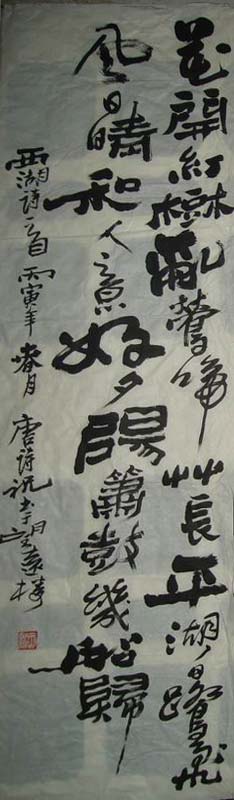 花開紅樹亂鶯啼艸長平湖白鷺飛
風日晴和人意好夕陽簫鼓幾船歸
西湖詩一首丙寅年春月唐詩祝書于